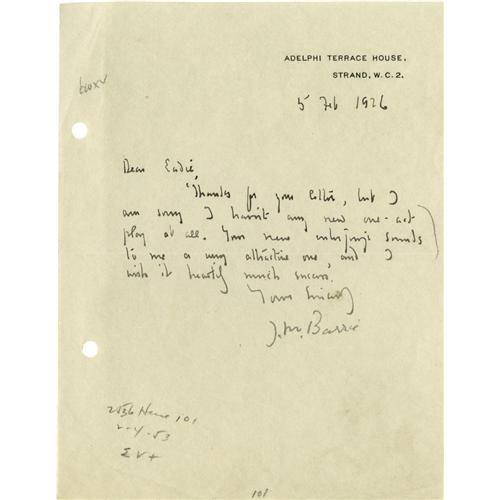 ADELPHI TERRACE HOUSE,
STRAND, W.C.2.
5 Feb 1926
Dear Eadie,
Thanks for your letter, but I
am sorry I haven't any new one-act
play at all. Your new enterprise sounds
to me a very attractive one, and I
wish it heartily much success.
Yours Sincerely
J. M. Barrie
101
2-4-53
108